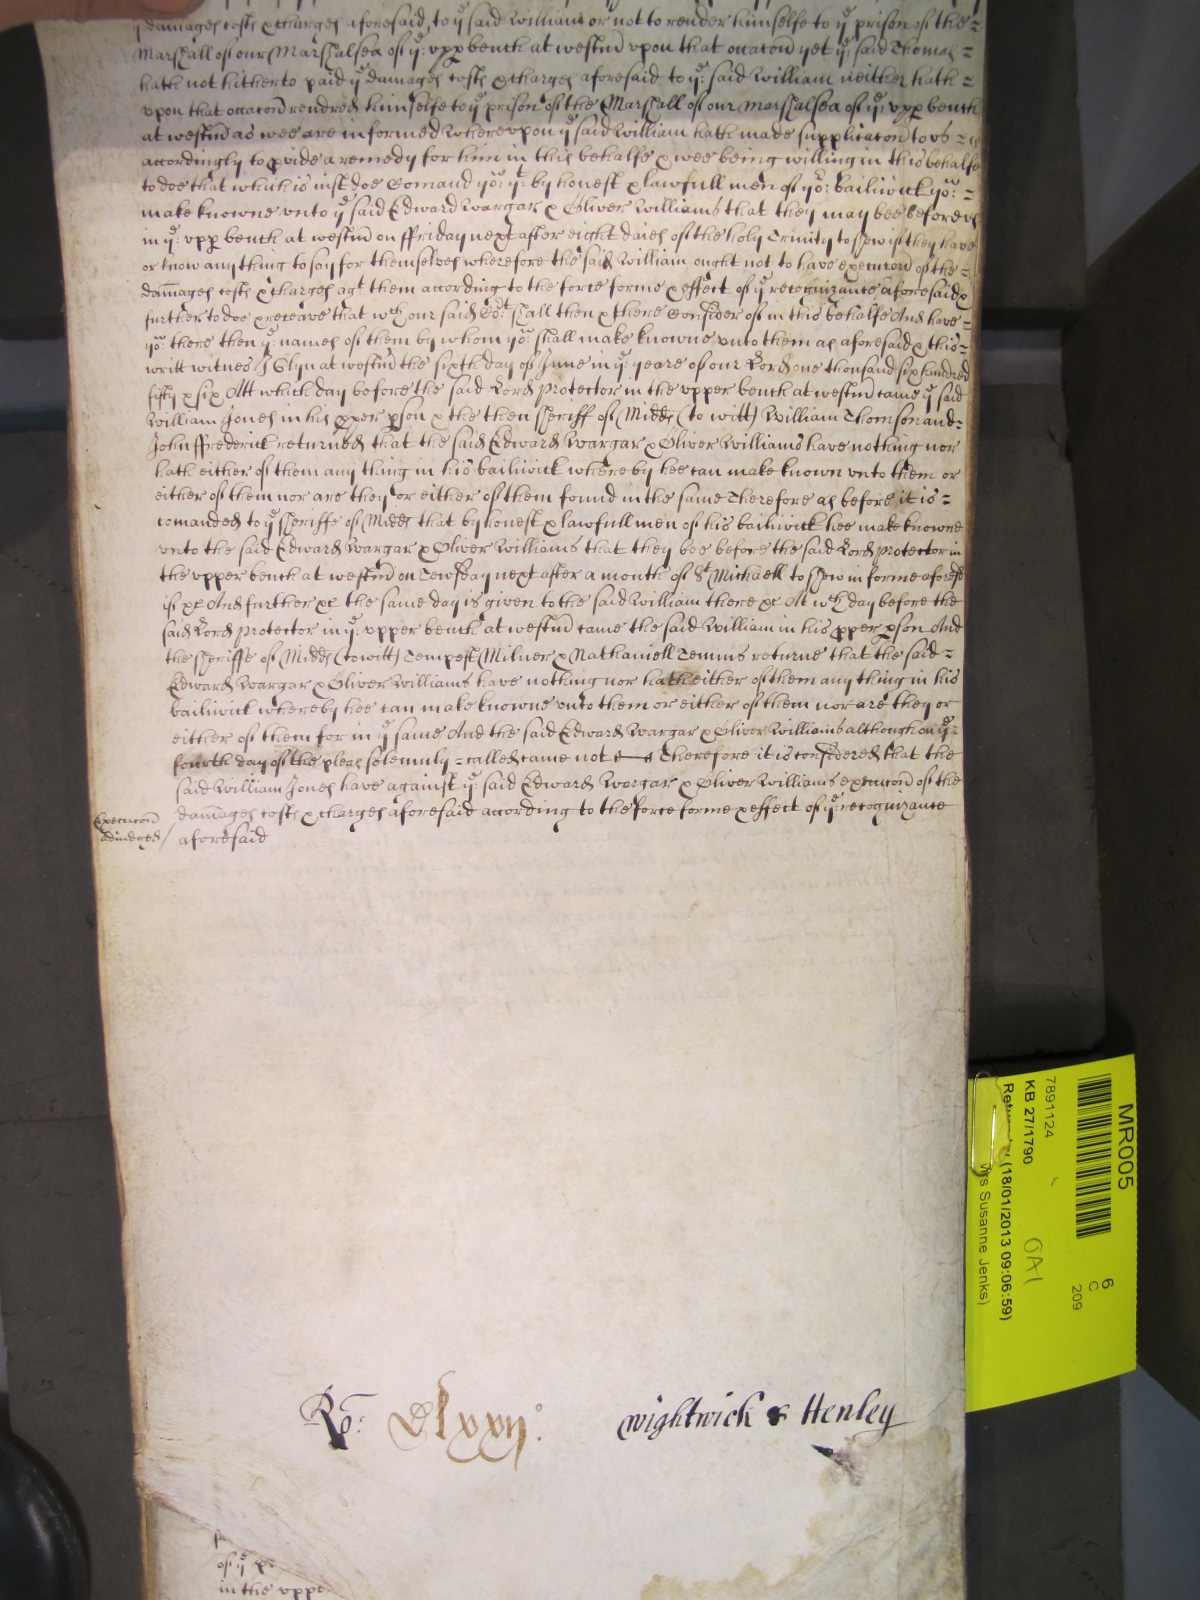 damages costs & charges aforesaid to ye said William or not to render himselfe to ye prison of the =
Marshall of our Marshalsea of ye: upp bench at westm̄ vpon that occac̄on yet ye: said Thomas =
hath not hitherto paid ye damages costs & charges aforesaid to ye: said William neither hath =
vpon that occac̄on rendred himselfe to ye prison of the Marshall of our Marshalsea of ye vpp bench
at westm̄ as wee are informed Wherevpon ye said William hath made supplicac̄on to vs =
accordingly to p̱vide a remedy for him in this behalfe & wee being willing in this behalfe
to doe that which is iust doe Com̄and yow: yt: by honest & lawfull men of yor: bailiwick yow: =
make knowne vnto ye said Edward Wargar & Oliver Williams that they may bee before vs
in ye: vpp bench at westm̄ on ffriday next after eight daies of the holy Trinity to shew if they have
or know any thing to say for themselves wherefore the said William ought not to have execuc̄on of the =
dam̄ages costs & charges agt them according to the force forme & effect of ye recognizance aforesaid &
further to doe & receave that wch our said Cort shall then & there Consider of in this behalfe And have =
yow: there then ye: names of them by whom yow: shall make knowne vnto them as aforesaid & this =
writt witnes J Glyn at westm̄ the sixth day of June in ye yeare of our Lord one thousand six hundred
fifty & six Att which day before the said Lord Protector in the vpper bench at westm̄ came ye said
William Jones in his p̱per p̱son & the then sheriff of Midds (to witt) William Thomson and =
John ffrederick returned that the said Edward Wargar & Oliver Williams have nothing nor
hath either of them any thing in his bailiwick whereby hee can make known vnto them or
either of them nor are they or either of them found in the same Therefore as before it is =
com̄anded to ye sheriffe of Midds that by honest & lawfull men of his bailiwick hee make knowne
vnto the said Edward Wargar & Oliver Williams that they bee before the said Lord Protector in
the vpper bench at westm̄ on Tewsday next after a month of St Michaell to shew in forme aforesd
if &c And further &c the same day is given to the said William there &c At wch day before the
said Lord Protector in ye: vpper bench at westm̄ came the said William in his p̱per p̱son And
the sheriffe of Midds (to witt) Tempest Milner & Nathaniell Temms returne that the said =
Edward Wargar & Oliver Williams have nothing nor hath either of them any thing in his
bailiwick whereby hee can make knowne vnto them or either of them nor are they or
either of them for in ye same And the said Edward Wargar & Oliver Williams although on ye =
fourth day of the pleas solemnly = called came not Therefore it is considered that the
said William Jones have against ye: said Edward Wargar & Oliver Williams execuc̄on of the
dam̄ages costs & charges aforesaid according to the force forme & effect of ye: recognizance
aforesaid
Execuc̄on
adiudged /
Ro: Dlxxijo:
Wightwick & Henley
of ye
in the vppe
MR005
7891124
KB 27/1790
6
C
209
GA1
(18/01/2013 09:06:59)
Susanne Jenks)